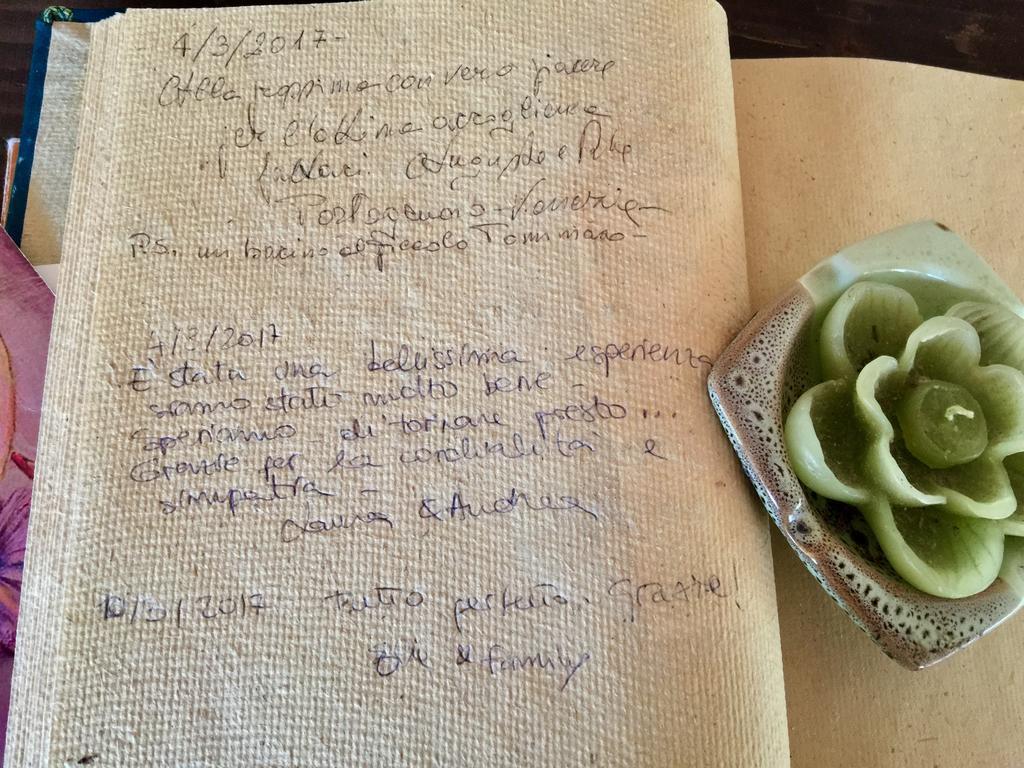 4/3/2017-
con vero piacere
l'ottima accoglienza
fattaci. Augusto e
Portogruaro - Venezia
P.S. un bacino al piccolo Tommaso-
4/3/2017
È stata una bellissima esperienza
siamo stati molto bene -
Speriamo di tornare presto...
Grazie per la cordialità e
simpatia -
Laura & Andrea
10/3/2017 tutto perfetto. Grazie!
& family